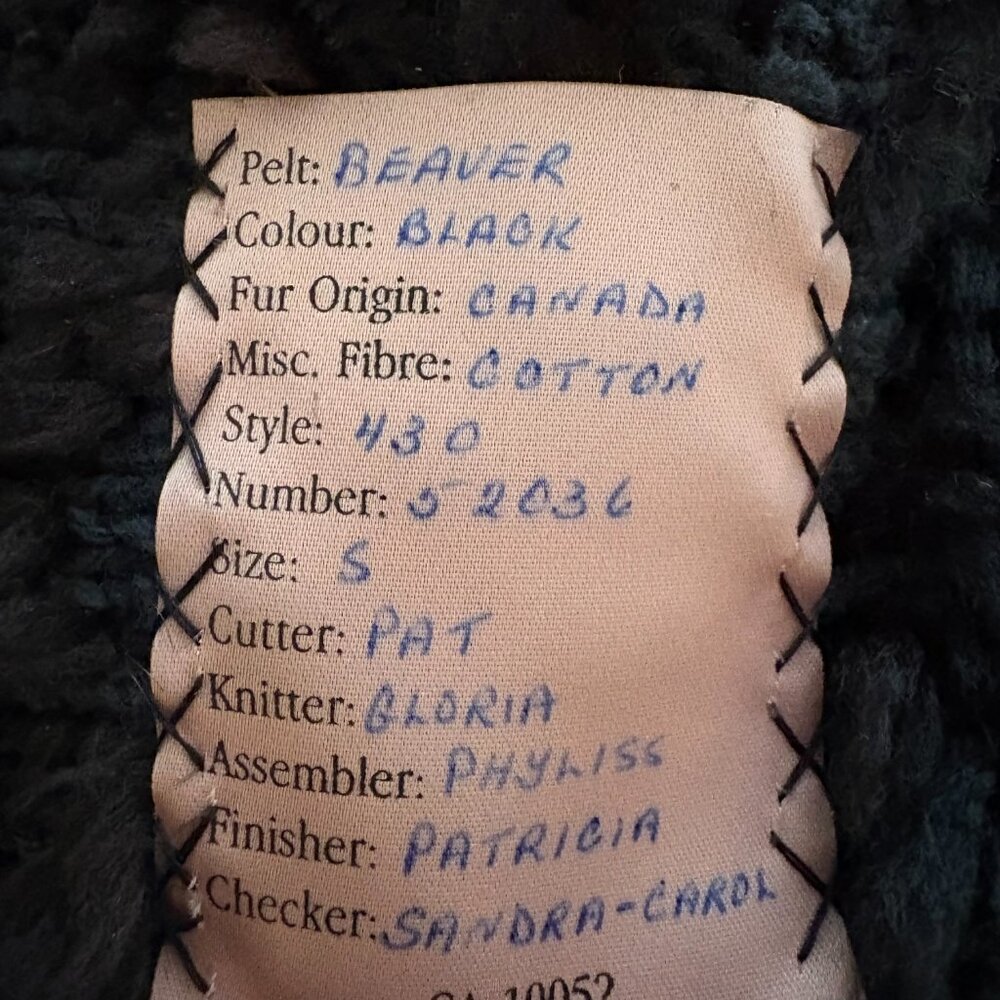 Pelt: BEAVER
Colour: BLACK
Fur Origin: CANADA
Misc. Fibre: COTTON
Style: 430
Number: 52036
Size: S
Cutter: PAT
Knitter: GLORIA
Assembler: PHYLISS
Finisher: PATRICIA
Checker: SANDRA-CAROL
CA 10052